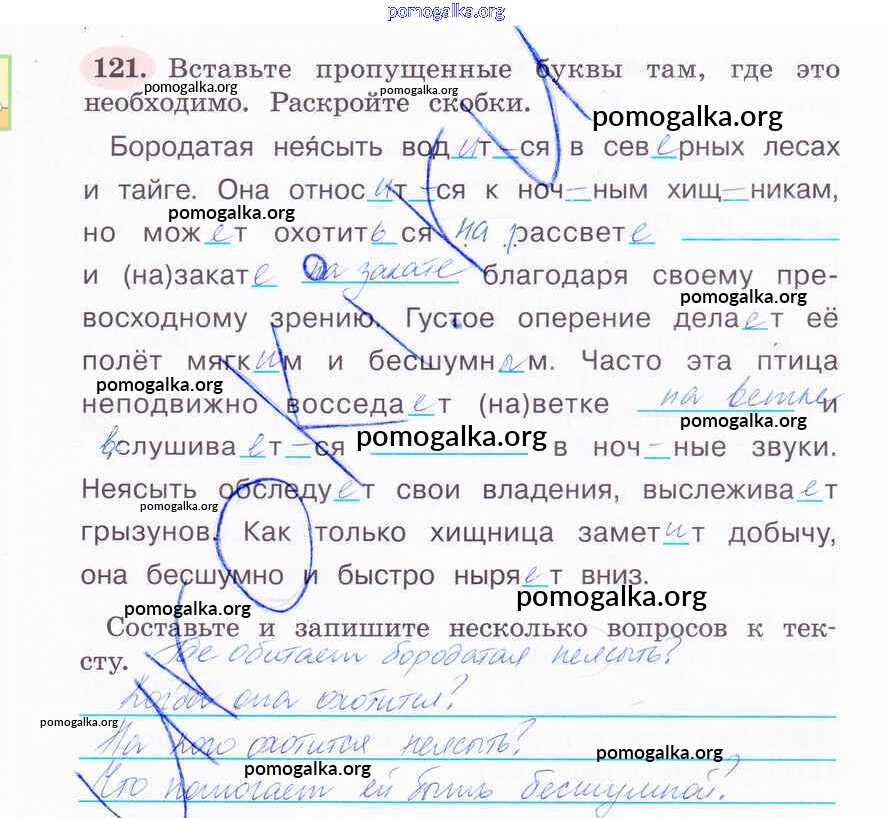 pomogalka.org
121. Вставьте пропущенные буквы там, где это
pomogalka.org pomogalka.org
необходимо. Раскройте скобки.
pomogalka.org
Бородатая нея́сыть водит–ся в северных лесах
и тайге. Она относит–ся к ноч–ным хищ–никам,
pomogalka.org
но может охотиться на рассвете
и (на)закате на закате благодаря своему пре-
pomogalka.org
восходному зрению. Густое оперение делает её
полёт мягким и бесшумным. Часто эта птица
pomogalka.org
неподвижно восседает (на)ветке на ветке и
pomogalka.org
вслушивает–ся в ноч–ные звуки.
Неясыть обследует свои владения, выслеживает
pomogalka.org
грызунов. Как только хищница заметит добычу,
она бесшумно и быстро ныряет вниз.
pomogalka.org
pomogalka.org
Составьте и запишите несколько вопросов к тек-
сту. Где обитает бородатая неясыть?
Когда она охотится?
pomogalka.org
На кого охотится неясыть?
pomogalka.org
pomogalka.org
Что помогает ей быть бесшумной?